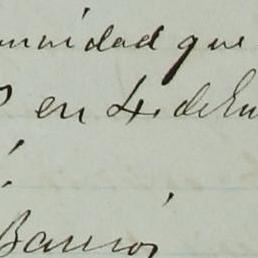 unidad que
en 4. de En
Barrios